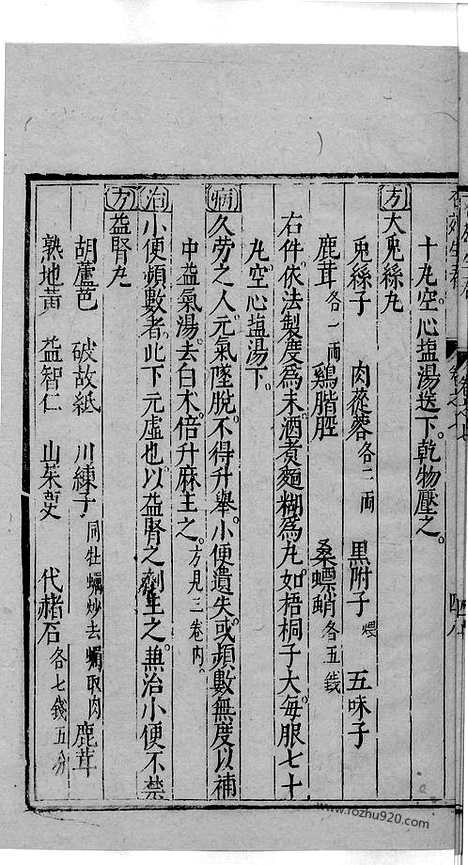 十丸空心塩湯送下乾物壓之。
方大兎絲丸
兎絲子　肉蓯蓉各二両　黒附子煨　五味子
鹿茸各一両　鷄䏶胵　桑螵蛸各五錢
右件依法製度為末酒煑麵糊為丸如梧桐子大每服七十
丸空心塩湯下。
病久劳之人元氣墜脱不得升舉小便遺失或頻數無度以補
中益氣湯去白术倍升麻主之。方見三卷内。
治小便頻數者此下元虚也以益腎之劑主之兼治小便不禁
方益腎丸
胡蘆芭　破故紙　川練子同牡蠣炒去蠣取肉　鹿茸
熟地黄　益智仁　山茱萸　代赭石各七錢五分
www.fozhu920.com